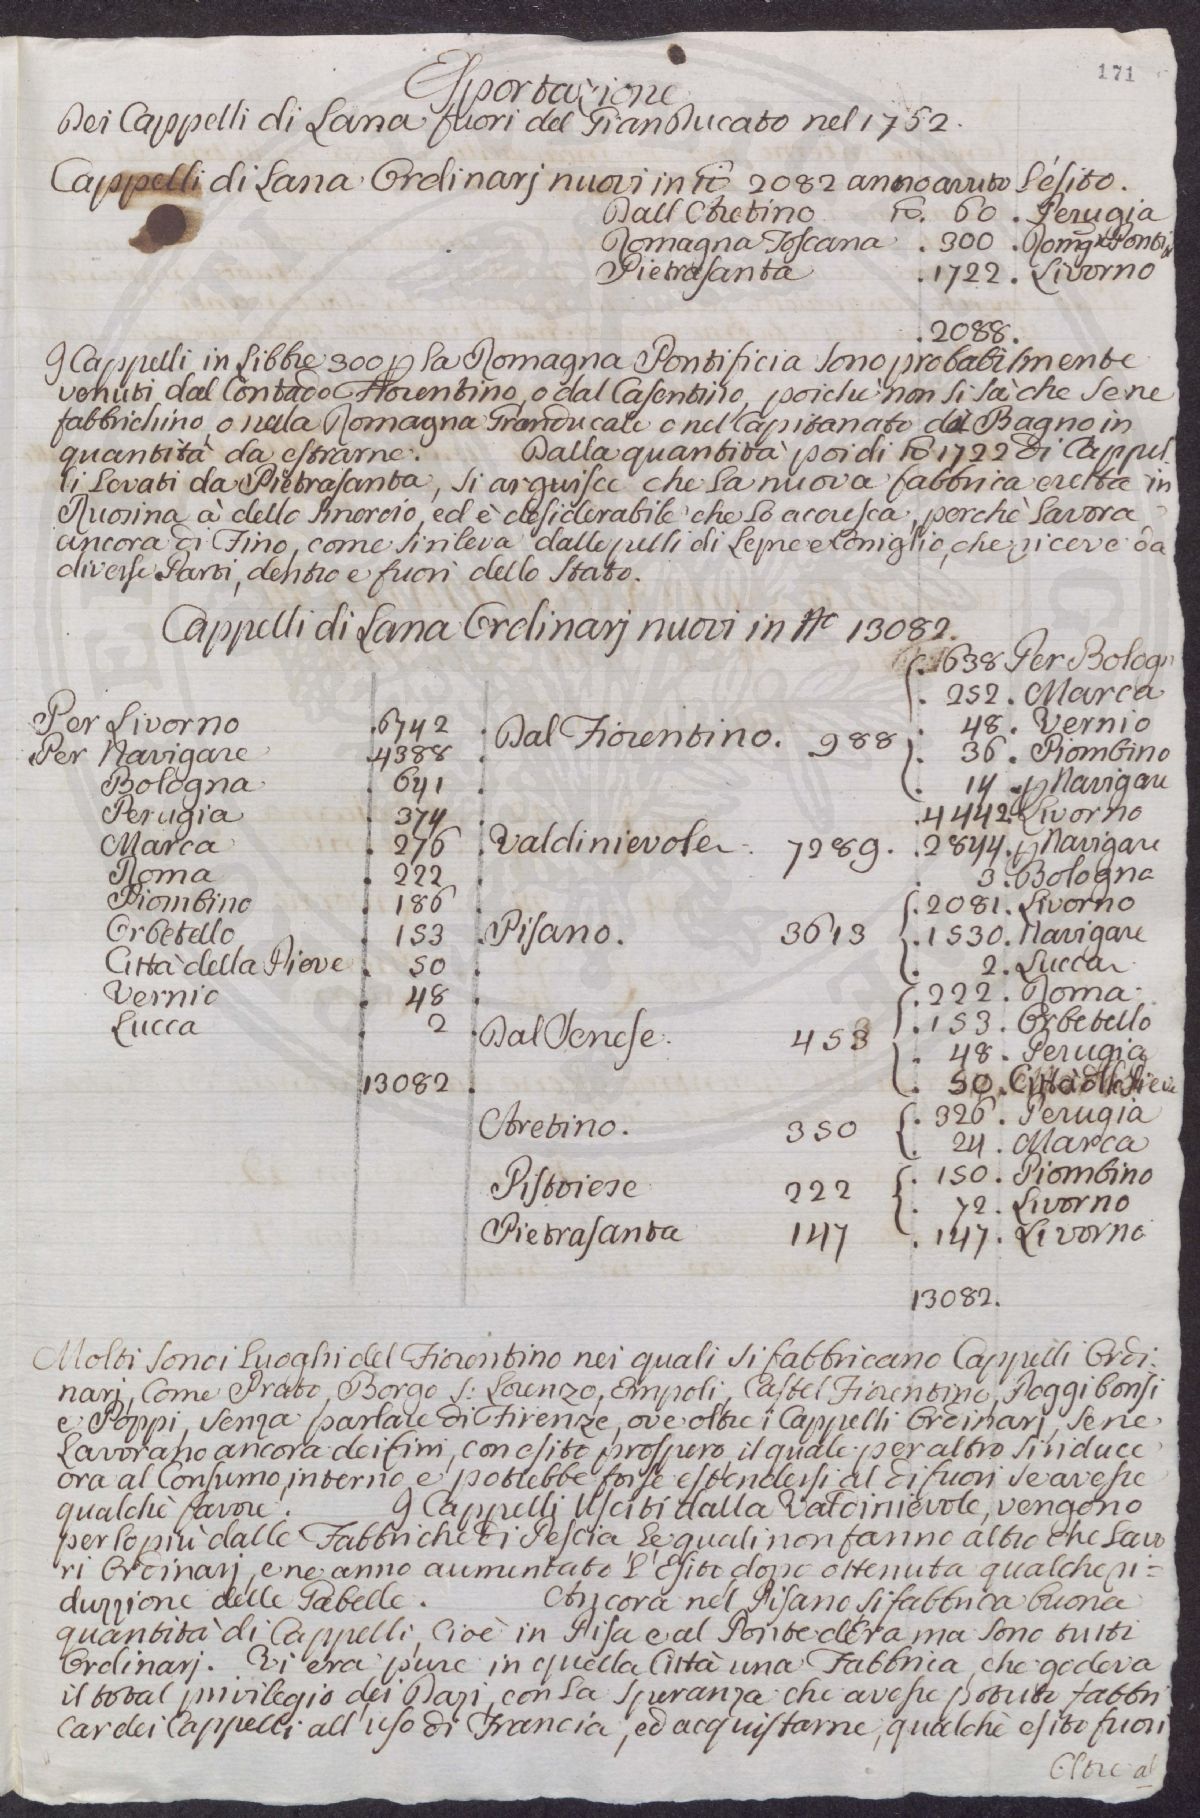 171
Esportazione
Dei Cappelli di Lana fuori del Gran Ducato nel 1752.
Cappelli di Lana Ordinarj nuovi in lb 2082 anno avuto L'ésito.
Dall Aretino lb. 60. Perugia
Romagna Toscana . 300 . Romga Pontifa
Pietrasanta . 1722 . Livorno
. 2088.
I Cappelli in Libbre 300 p La Romagna Pontificia sono probabilmente
venuti dal Contado Fiorentino, o dal Casentino, poichè non si sà che se ne
fabbrichino, o nella Romagna Granducale o nel Capitanato di Bagno in
quantità da estrarne. Dalla quantità poi di lb 1722 di Cappel-
li Levati da Pietrasanta, si arguisce che La nuova fabbrica eretta in
Ruosina à dello smercio, ed è desiderabile che Lo acresca, perchè Lavora
ancora di Fino, come si rileva dalle pelli di Lepre e Coniglio, che riceve da
diverse Parti, dentro e fuori dello Stato.
Cappelli di Lana Ordinarj nuovi in No 13082.
Per Livorno . 6742
Per Navigare . 4388
Bologna . 641
Perugia . 374
Marca . 276
Roma . 222
Piombino . 186
Orbetello . 153
Città della Pieve . 50
Vernio . 48
Lucca . 2
13082.
Dal Fiorentino. 988
. 638 Per Bologn
. 252 . Marca
. 48 . Vernio
. 36 . Piombino
. 14 . p Navigare
Valdinievole. 7289.
. 4442. Livorno
. 2844. p Navigare
3. Bologna
Pisano. 3613
. 2081. Livorno
. 1530. Navigare
. 2. Lucca
Dal Senese. 453
. 222. Roma
. 153. Orbetello
. 48. Perugia
. 50. Città della Pieve
Aretino. 350
. 326. Perugia
. 24. Marca
Pistoiese 222
. 150. Piombino
. 72. Livorno
Pietrasanta 147 . 147. Livorno
13082.
Molti sono i Luoghi del Fiorentino nei quali si fabbricano Cappelli Ordi-
narj, Come Prato, Borgo S: Lorenzo, Empoli, Castel Fiorentino, Poggibonsi
e Poppi, senza parlare di Firenze, ove oltre i Cappelli Ordinarj, se ne
Lavorano ancora dei fini, con esito prospero, il quale per altro si riduce
ora al Consumo interno e potrebbe forse estendersi al di fuori se avesse
qualchè favore. I Cappelli Usciti dalla Valdinievole, vengono
per lo più dalle Fabbriche di Pescia Le quali non fanno altro che Lavo
ri Ordinarj, e ne anno aumentato L'Esito dopo ottenuta qualche ri=
duzzione delle Gabelle. Ancora nel Pisano si fabbrica buona
quantità di Cappelli, Cioè in Pisa e al Ponte dEra ma sono tutti
Ordinarj. Vi era pure in quella Città una Fabbrica che godeva
il total privilegio dei Dazi, con La Speranza che avesse potuto fabbri
car dei Cappelli all'uso di Francia, ed acquistarne qualchè esito fuori
Oltre al